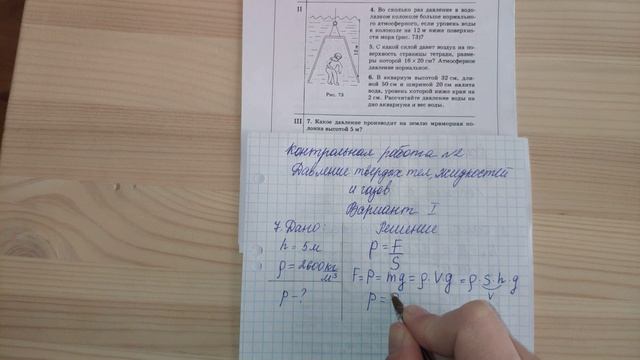 II
4. Во сколько раз давление в водо-
лазном колоколе больше нормально-
го атмосферного, если уровень воды
в колоколе на 12 м ниже поверхнос-
ти моря (рис. 73)?
5. С какой силой давит воздух на по-
верхность страницы тетради, разме-
ры которой 16 × 20 см? Атмосферное
давление нормальное.
6. В аквариум высотой 32 см, дли-
ной 50 см и шириной 20 см налита
вода, уровень которой ниже края на
2 см. Рассчитайте давление воды на
дно аквариума и вес воды.
12 м
Рис. 73
III 7. Какое давление производит на землю мраморная ко-
лонна высотой 5 м?
Контрольная работа №2
Давление твердых тел, жидкостей
и газов
Вариант I
7. Дано: Решение
h = 5м p = F/S
ρ = 2600 кг/м³ F = P = mg = ρ·Vg = ρ·S·h g
V
p - ? p =